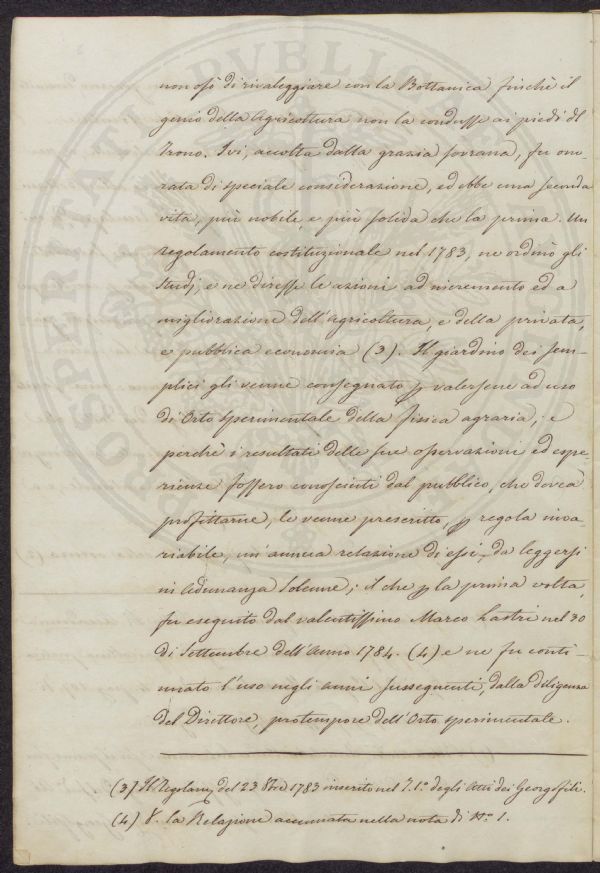 non osò di rivaleggiare con la Bottanica, finchè il
genio della Agricoltura non la condusse ai piedi del
Trono. Ivi, accolta dalla grazia sovrana, fu ono-
rata di speciale considerazione, ed ebbe una seconda
vita, più nobile, e più solida che la prima. Un
regolamento costituzionale nel 1783, ne ordinò gli
studj, e ne diresse le azioni ad incremento ed a
migliorazione dell'Agricoltura, e della privata,
e pubblica economia (3). Il giardino dei sem-
plici gli venne consegnato p valersene ad uso
di Orto sperimentale della fisica agraria, e
perchè i resultati delle sue osservazioni ed espe-
rienze fossero conosciuti dal pubblico, che dovea
profittarne, le venne prescritto, p regola inva-
riabile, un'annua relazione di essi, da leggersi
in Adunanza solenne; il che p la prima volta,
fu eseguito dal valentissimo Marco Lastri nel 30
di Settembre dell'Anno 1784. (4) e ne fu conti-
nuato l'uso negli anni susseguenti, dalla diligenza
del Direttore, protempore dell'Orto sperimentale.
(3) Il Regolam. del 23 8bre 1783 inserito nel T. 1.º degli Atti dei Georgofili.
(4) V. la Relazione accennata nella nota di Nº. 1.
PROSPERITATI PVBLICAE